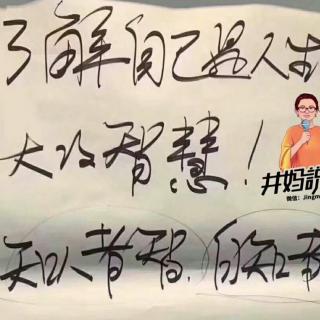 了解自己是人生
大的智慧！
井妈說
微信：Jingm
知人者智，自知者